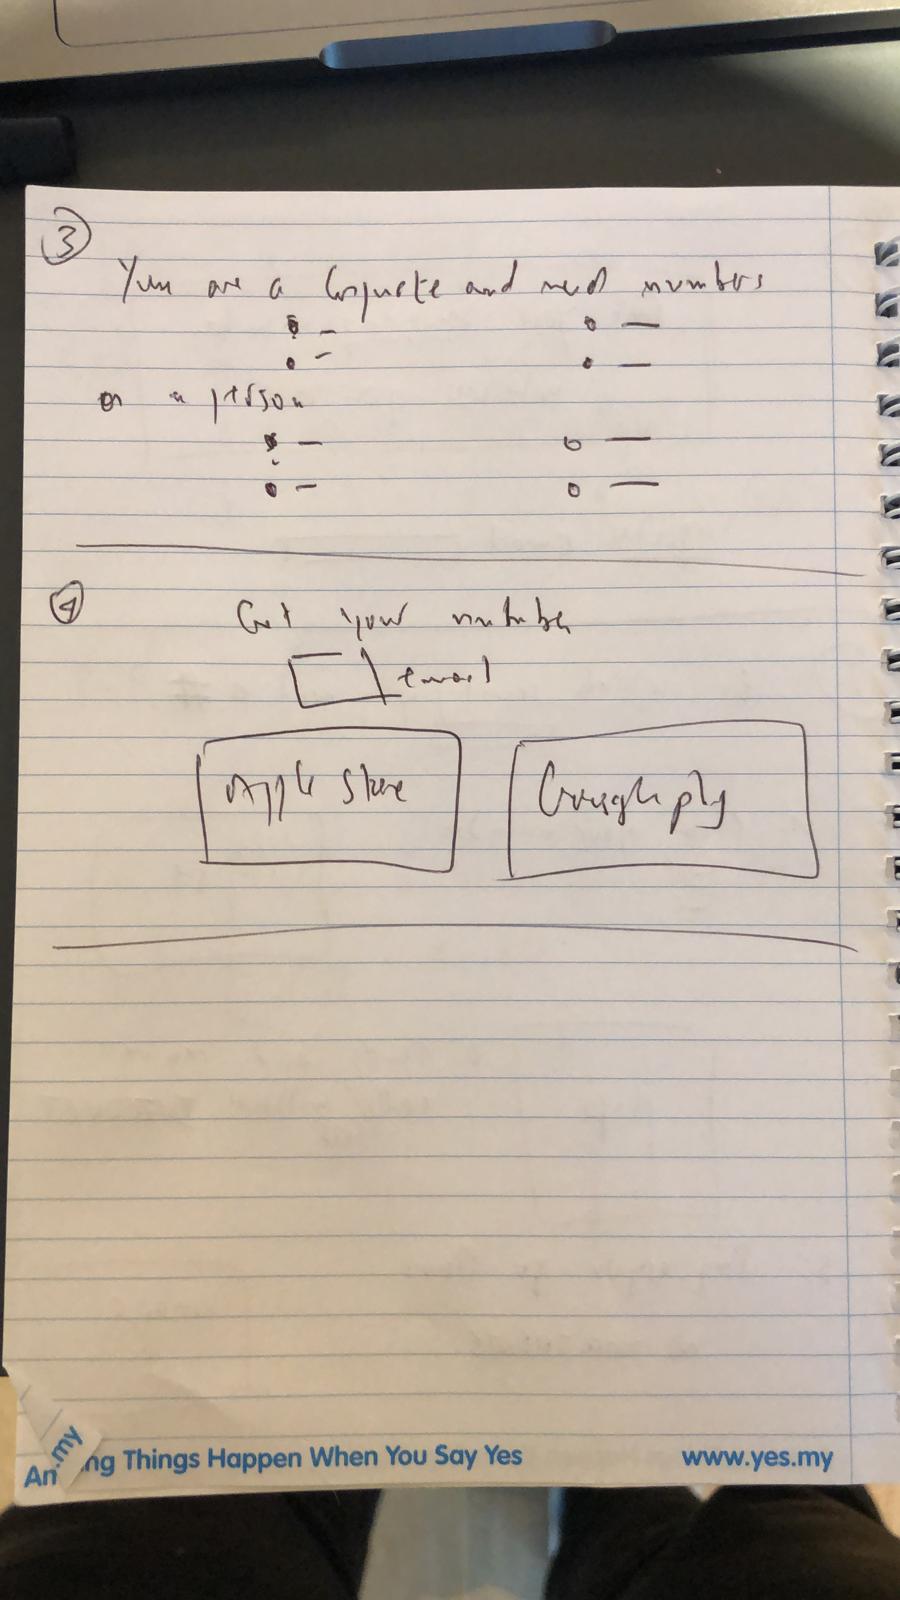 3
You are a Corporate and need numbers
or a person
4
Get your number
email
Apple Store
Google play
ng Things Happen When You Say Yes
www.yes.my
An
.my